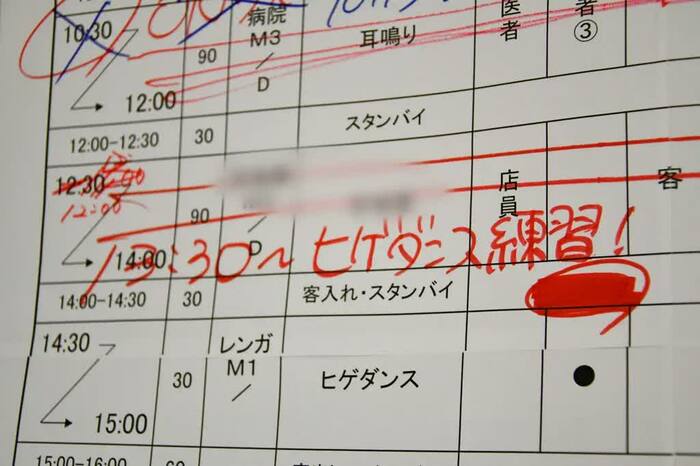 10:30 病院 医者 者
90 M3 耳鳴り ③
12:00 D
12:00-12:30 30 スタンバイ
12:30
12:00 店員 客
90
14:00 D
13:30～ヒゲダンス練習！
14:00-14:30 30 客入れ・スタンバイ
14:30 レンガ
30 M1 ヒゲダンス ●
15:00 /
15:00-16:00